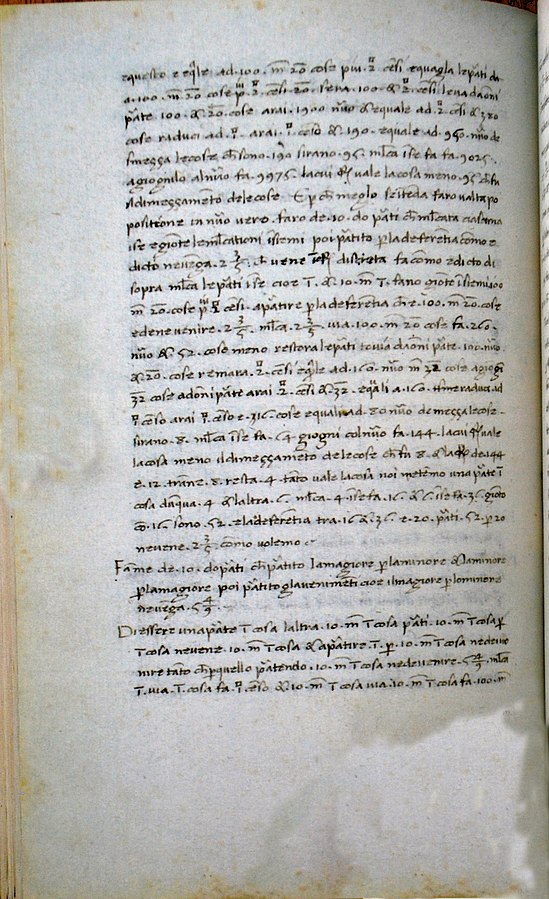 equesto e eq̄le ad .100. m̄ 20 cose piu .2. cēsi equagla le p̄ati da
a .100. m̄ 20 cose p̄ .2. cēsi .20. se ra .100. & .2. cēsi leva da oni
p̄ate 100. & 20. cose arai .1900 nūo & equale ad .2. cēsi & 380
cose raduci ad .1. arai .1. cēso & 190. equale ad. 950. nūo de
le cose ch̄ sono .190 sirano. 95. m̄lca i se fa fa .9025.
agiognilo al nūo fa. 9975. la cui vale la cosa meno. 95 ch̄ fu
il dimezzamēto dele cose E p ch̄ meglo se itēda faro unaltra po
positione in nūo vero. faro de .10. do p̄ati ch̄ m̄lcata ciascuna
i se e giōte le m̄lcationi issiemi poi p̄atito p la deferētia cōmo e
dicto ne vēga. 2 2/5. ch̄ vene discreta fa como e dicto di
sopra m̄lca le p̄ati i se cioe 1̄. & 10. m̄ 1̄. fano giōte issiemi 100
m̄ 20. cose p̄ 2 cēsi. a p̄atire p la deferētia ch̄ e. 100. m̄ 20. cose
e de ne venire. 2 3/5 m̄lca. 2 3/5 via .100. m̄ 20 cose fa. 260.
nūo & 52. cose meno restora le p̄ati to via da oni p̄ate. 100. nūo
& 20. cose remara. 2. cēsi eq̄le ad. 160. nūo m̄ 32 cose agiogi
32 cose ad oni p̄ate arai .2. cēsi & 32. eq̄li a .160. raduci ad
.1. cēso arai .1. cēso e. 16 cose equali ad. 80 nūo demezza le cose.
sirano. 8. m̄lca i se fa. 64 giogni col nūo fa. 144. la cui vale
la cosa meno il dimezzamēto dele cose ch̄ fu 8. & la de. 144
e. 12. trane. 8. resta. 4. tāto vale la cosa noi metēmo una p̄ate 1̄
cosa dūqua. 4 & laltra. 6. m̄lca. 4. i se fa. 16. & 6. i se fa. 36. giōto
cō. 16 sono. 52. e la deferētia tra. 16 & 36. e. 20. p̄ati. 52. p 20
ne vene. 2 3/5 cōmo volemo
Fame de .10. do p̄ati ch̄ p̄atito la magiore p la minore & la minore
p la magiore poi p̄atito gla venimēti cioe il magiore p lo minore
ne vēga. 5 4/9.
Di essere una p̄ate 1̄ cosa laltra. 10. m̄ 1̄ cosa p̄ati. 10. m̄ 1̄ cosa p
1̄ cosa ne vene. 10. m̄ 1̄ cosa & a p̄atire. 1̄. p. 10. m̄ 1̄ cosa ne de ve
nire tāto ch̄ p quello p̄atendo. 10. m̄ 1̄ cosa ne de venire. 5 4/9. m̄lca
1̄. via. 1̄. cosa fa. 1. cēso & 10. m̄ 1̄ cosa via. 10. m̄ 1̄ cosa fa. 100. m̄